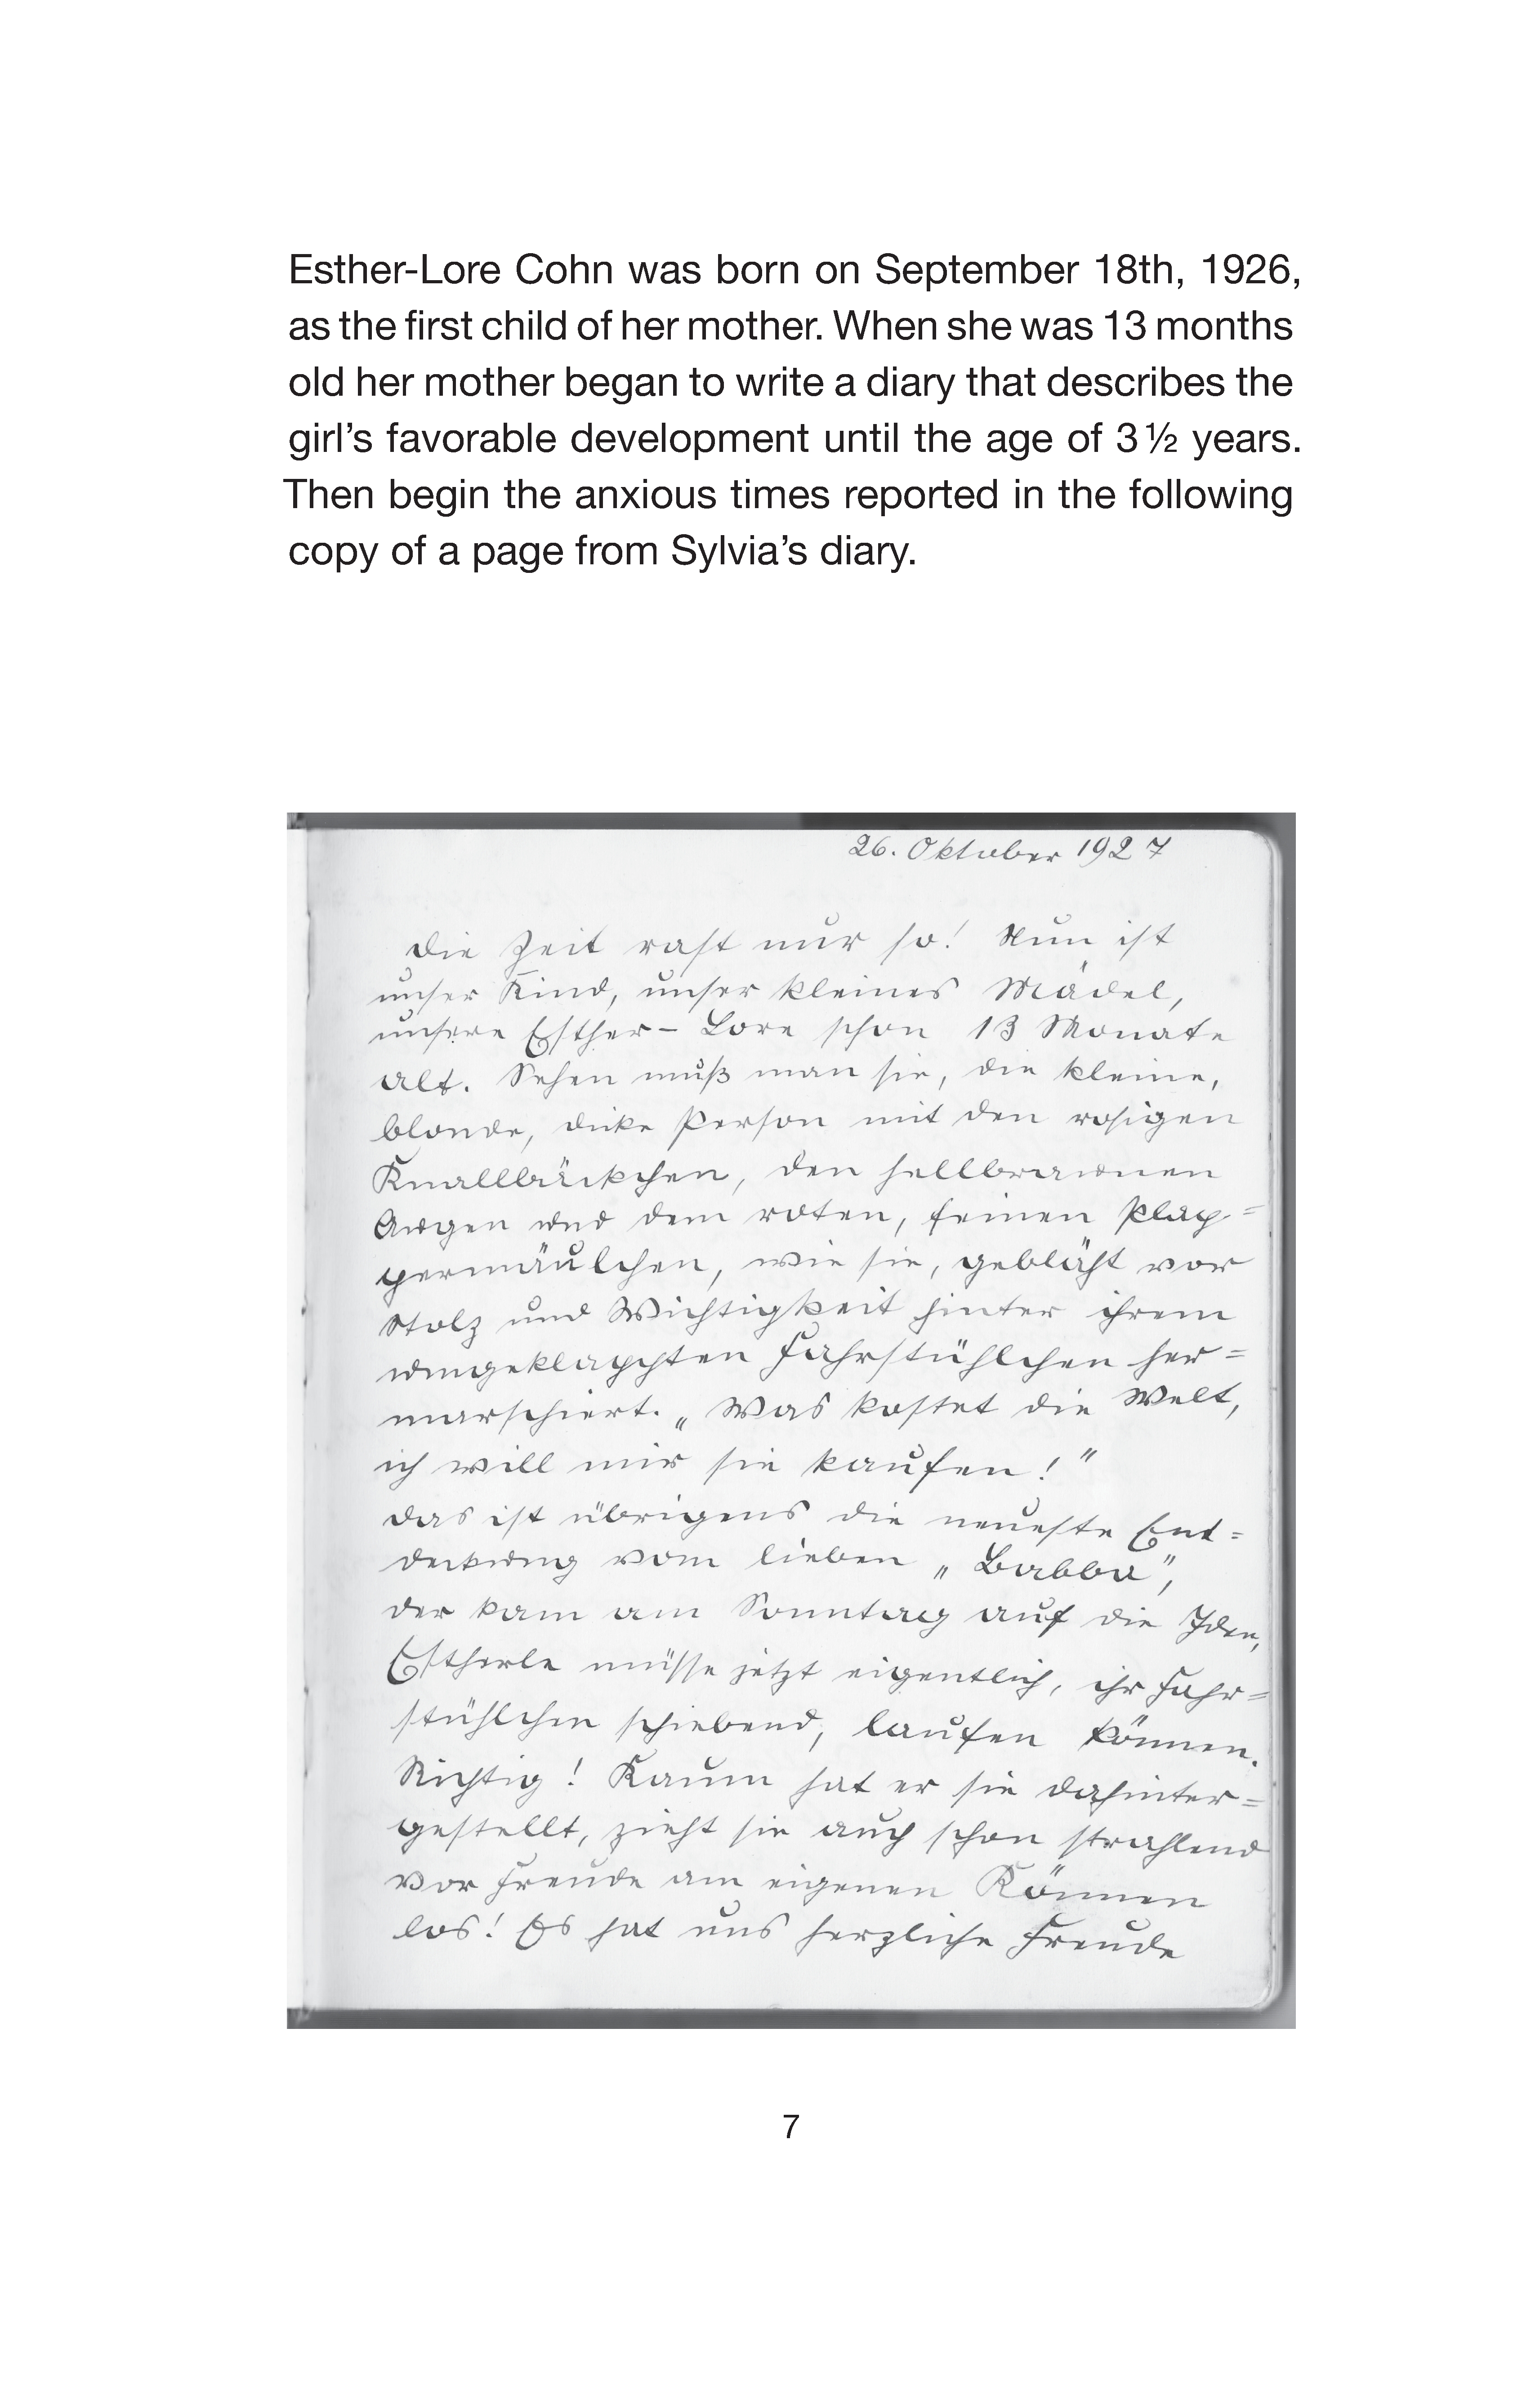 Esther-Lore Cohn was born on September 18th, 1926,
as the first child of her mother. When she was 13 months
old her mother began to write a diary that describes the
girl’s favorable development until the age of 3 ½ years.
Then begin the anxious times reported in the following
copy of a page from Sylvia’s diary.
26. Oktober 1927
Die Zeit rast nur so! Nun ist
unser Kind, unser kleines Mädel,
unsere Esther-Lore schon 13 Monate
alt. Sehen muß man sie, die kleine,
blonde, dicke Person mit den rosigen
Knallbäckchen, den hellbraunen
Augen und dem roten, feinen Plap=
permäulchen, wie sie, gebläht vor
Stolz und Wichtigkeit hinter ihrem
umgeklappten Fahrstühlchen her=
marschiert. „Was kostet die Welt,
ich will mir sie kaufen!"
Das ist übrigens die neueste Ent=
deckung vom lieben „Babba",
der kam am Sonntag auf die Idee,
Estherle müsse jetzt eigentlich, ihr Fahr=
stühlchen schiebend, laufen können.
Richtig! Kaum hat er sie dahinter=
gestellt, zieht sie auch schon strahlend
vor Freude am eigenen Können
los! Es hat uns herzliche Freude
7